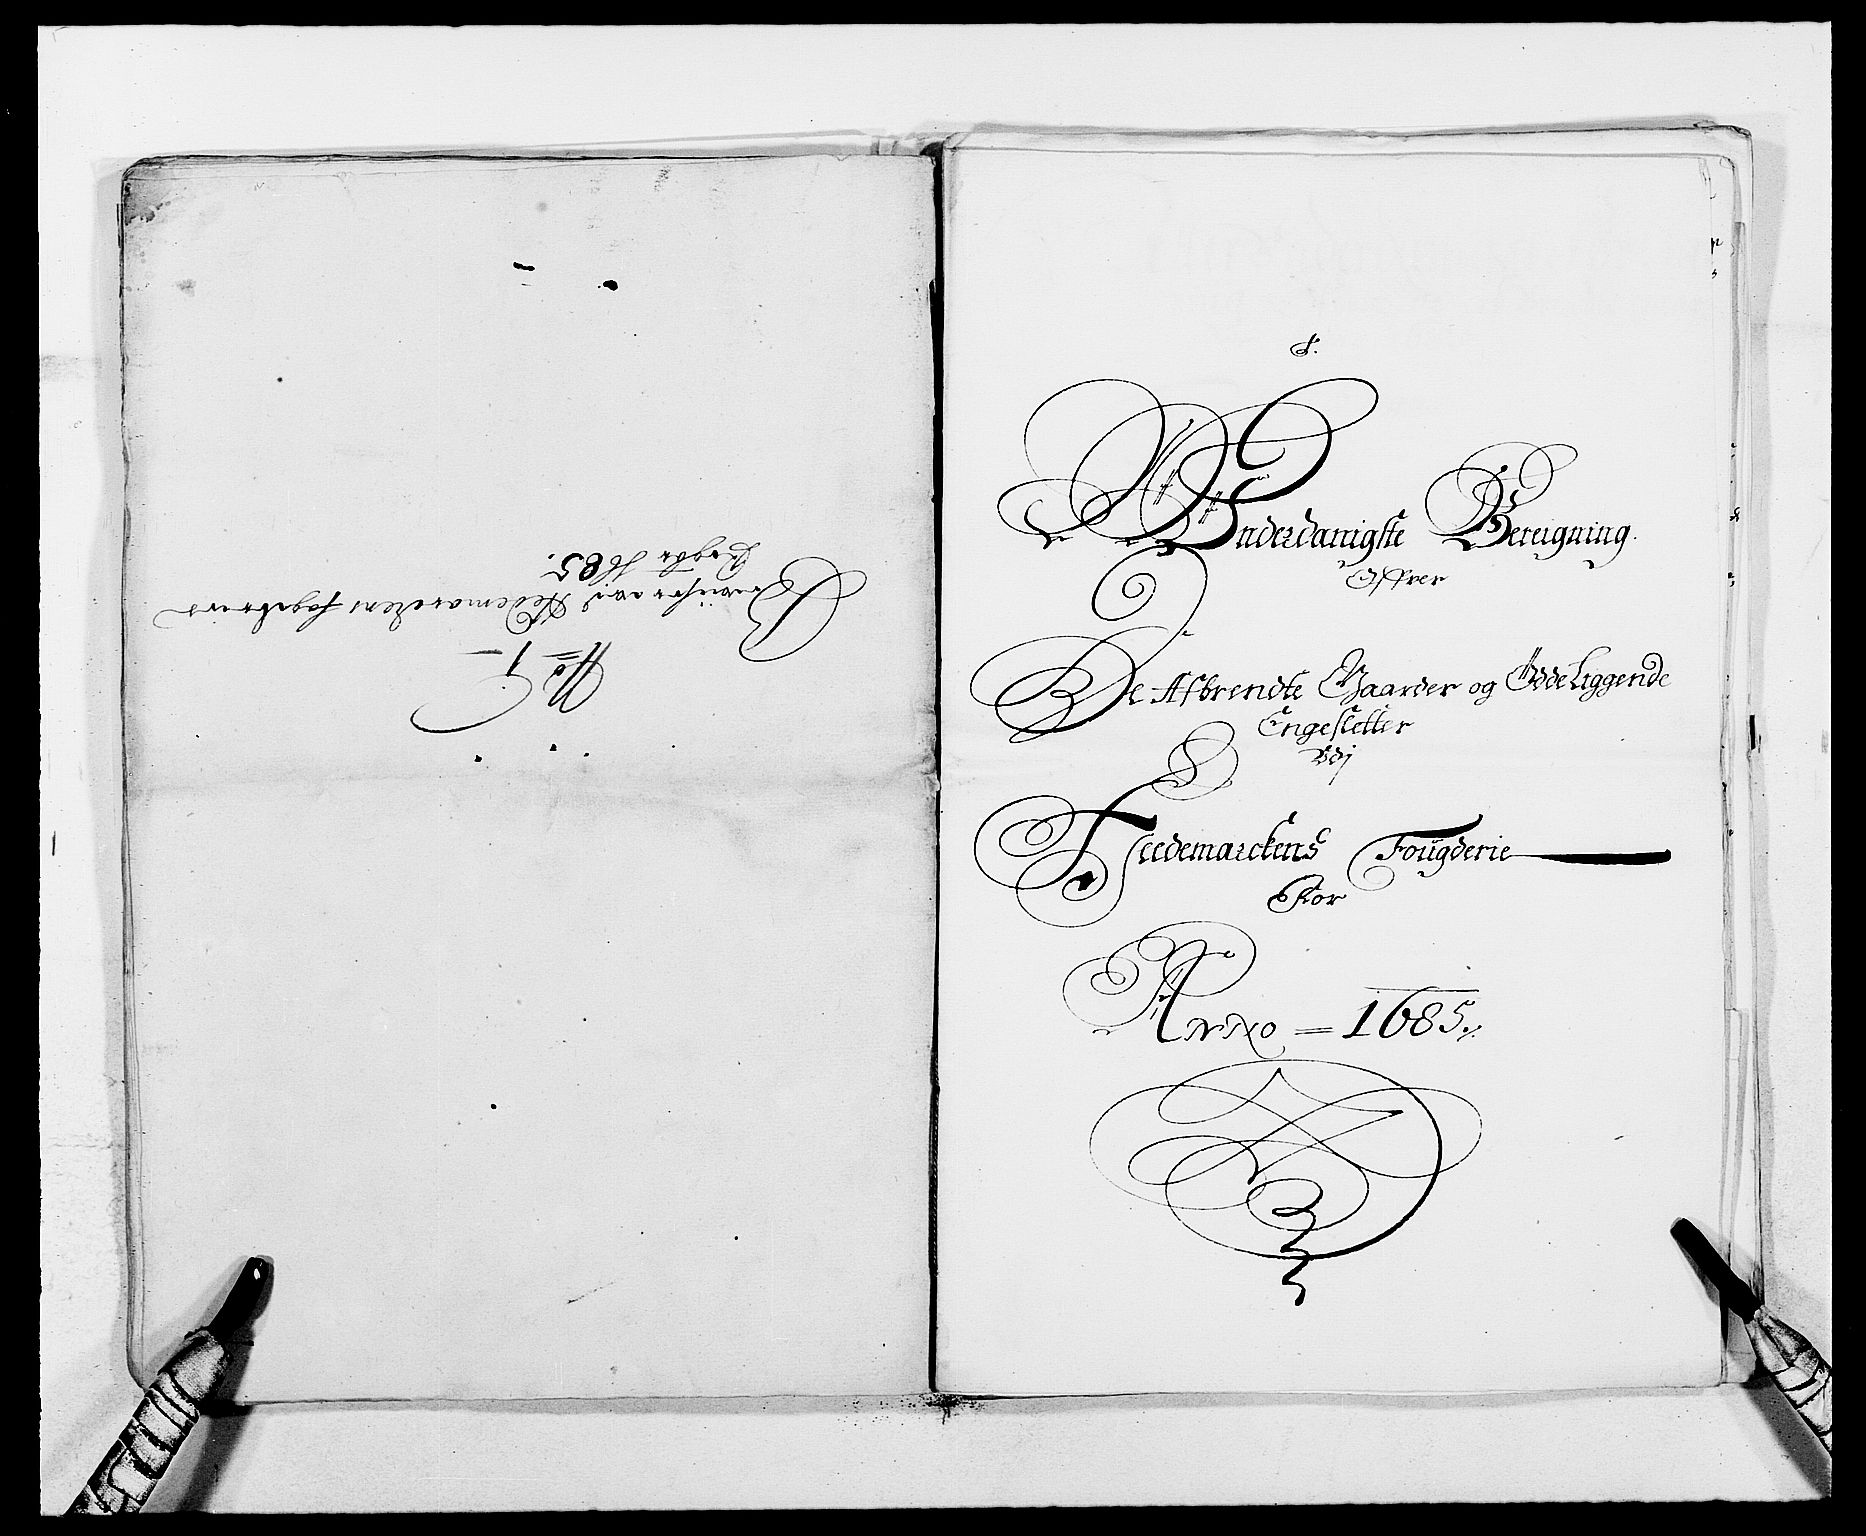 No 1
Hedemarckens fogderie
1685.
Underdanigste Bereigning.
Offver
De Afbrendte Gaarder og Ödeliggende
Engesletter
Udj
Heedemarckens Fougderie
For
Anno = 1685.